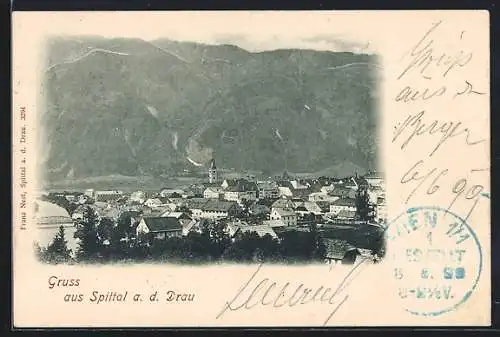 Franz Nest, Spittal a. d. Drau. 3294
Gruss
aus Spittal a. d. Drau
Gruss
aus den
Bergen
6/6 99
WIEN 1/1
1
BESTELLT
8. 6. 99